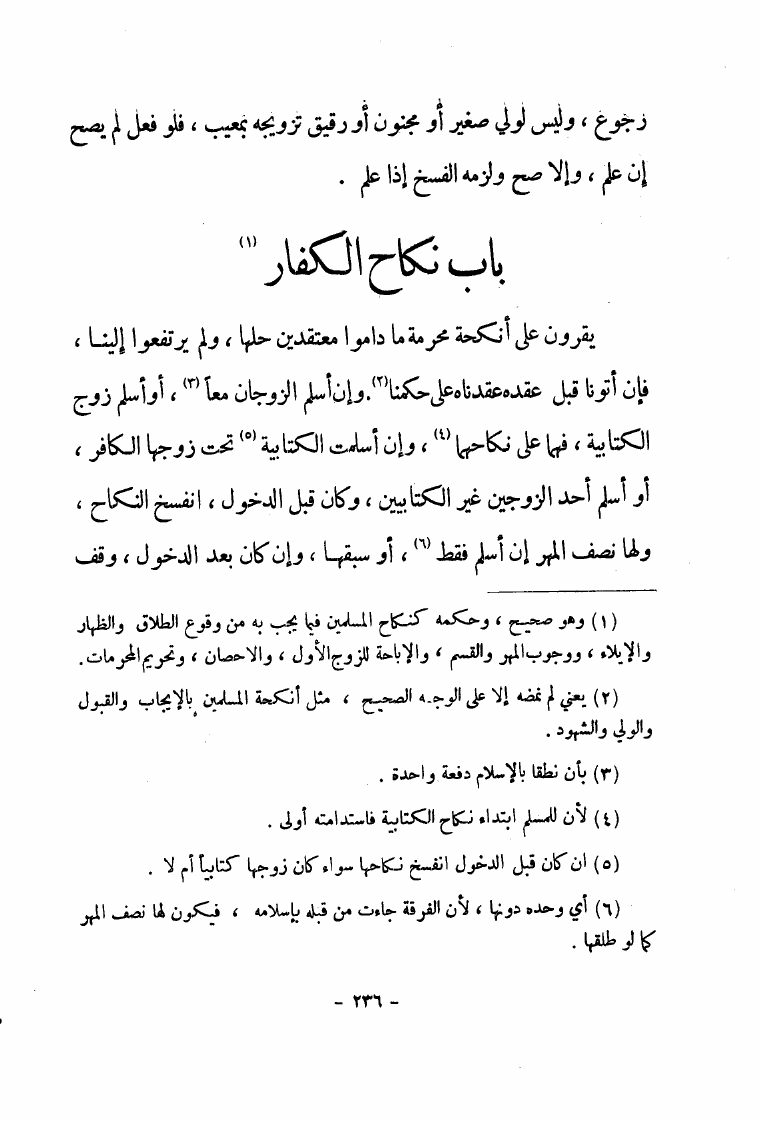 زجوع ، وليس لولي صغير أو مجنون أو رقيق تزويجه بمعيب ، فلو فعل لم يصح
إن علم ، وإلا صح ولزمه الفسخ إذا علم .
باب نكاح الكفار (١)
يقرون على أنكحة محرمة ما داموا معتقدين حلها ، ولم يرتفعوا إلينا ،
فإن أتونا قبل عقده عقدناه على حكمنا(٢) . وإن أسلم الزوجان معاً (٣) ، أو أسلم زوج
الكتابية ، فهما على نكاحهما (٤) ، وإن أسلمت الكتابية (٥) تحت زوجها الكافر ،
أو أسلم أحد الزوجين غير الكتابيين ، وكان قبل الدخول ، انفسخ النكاح ،
ولها نصف المهر إن أسلم فقط (٦) ، أو سبقها ، وإن كان بعد الدخول ، وقف
(١) وهو صحيح ، وحكمه كنكاح المسلمين فيما يجب به من وقوع الطلاق والظهار
والإيلاء ، ووجوب المهر والقسم ، والإباحة للزوج الأول ، والاحصان ، وتحريم المحرمات .
(٢) يعني لم نمضه إلا على الوجه الصحيح ، مثل أنكحة المسلمين بالإيجاب والقبول
والولي والشهود .
(٣) بأن نطقا بالإسلام دفعة واحدة .
(٤) لأن للمسلم ابتداء نكاح الكتابية فاستدامته أولى .
(٥) ان كان قبل الدخول انفسخ نكاحها سواء كان زوجها كتابياً أم لا .
(٦) أي وحده دونها ، لأن الفرقة جاءت من قبله بإسلامه ، فيكون لها نصف المهر
كما لو طلقها .
- ٢٣٦ -